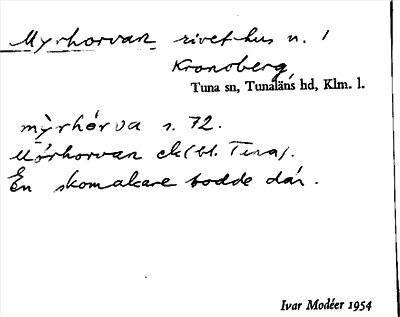 Myrhorvan, rivet hus n. 1
Kronoberg,
Tuna sn, Tunaläns hd, Klm. l.
myrhórva s. 72.
Mörhorvan ek (bl. Tuna).
En skomakare bodde där.
Ivar Modéer 1954